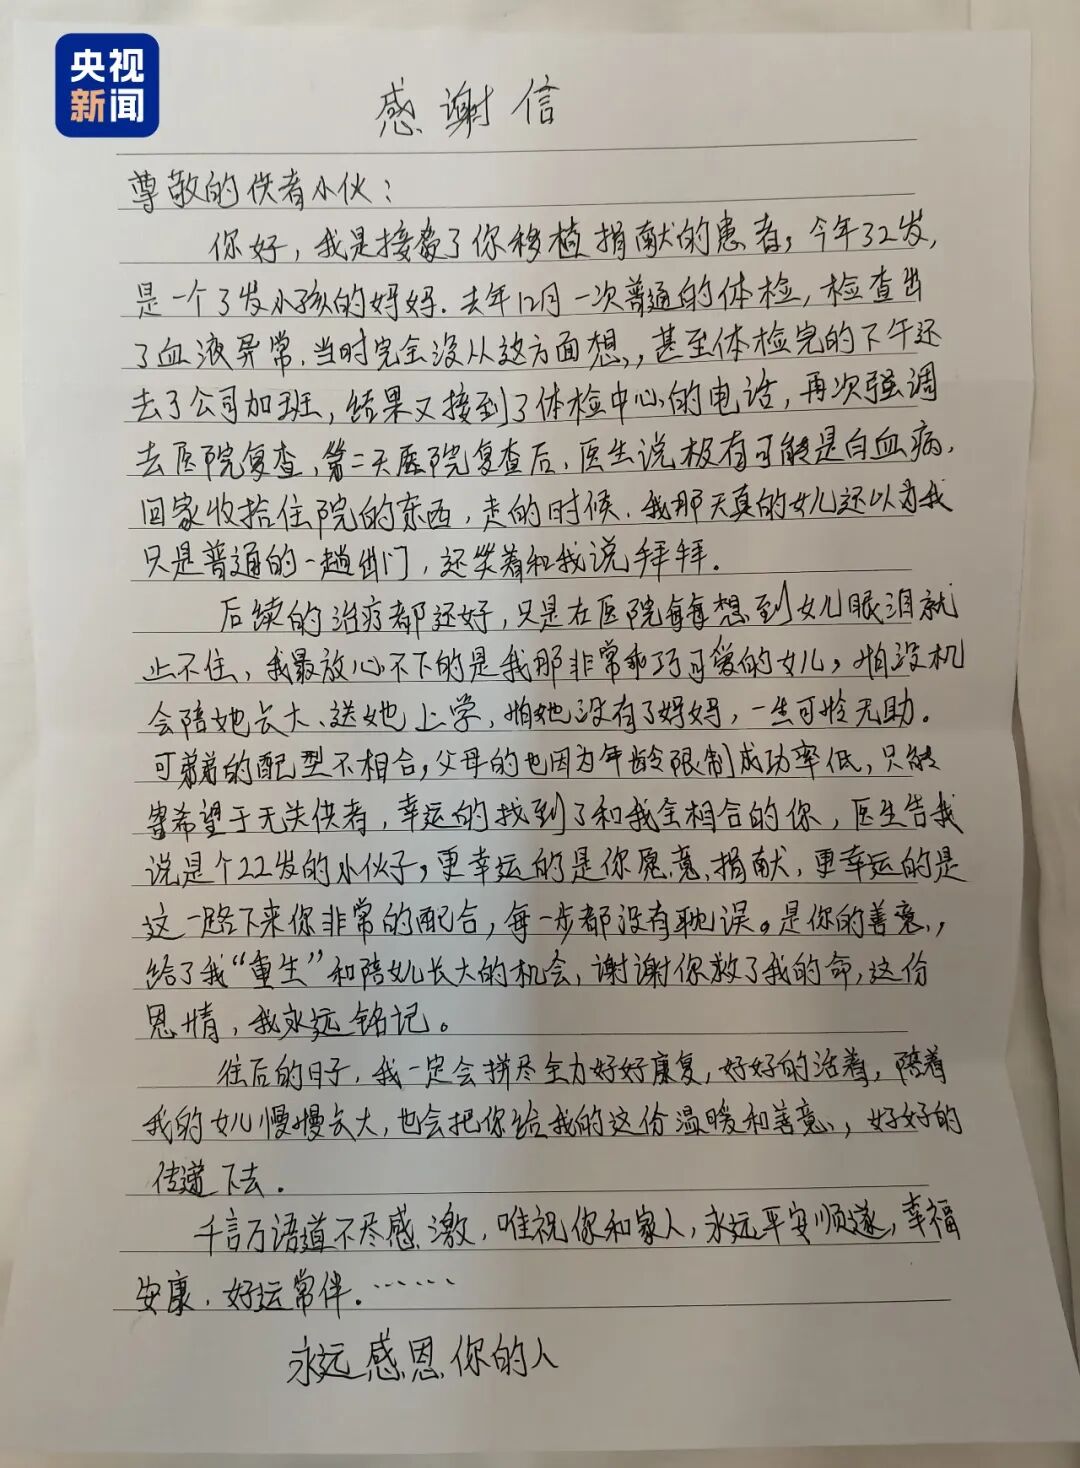 央视
新闻
感谢信
尊敬的供者小伙：
你好，我是接受了你移植捐献的患者，今年32岁，
是一个3岁小孩的妈妈.去年12月一次普通的体检，检查出
了血液异常.当时完全没从这方面想，甚至体检完的下午还
去了公司加班，结果又接到了体检中心的电话，再次强调
去医院复查，第二天医院复查后，医生说极有可能是白血病，
回家收拾住院的东西，走的时候，我那天真的女儿还以为我
只是普通的一趟出门，还笑着和我说拜拜.
后续的治疗都还好，只是在医院每每想到女儿眼泪就
止不住，我最放心不下的是我那非常乖巧可爱的女儿，怕没机
会陪她长大、送她上学，怕她没有了妈妈，一生可怜无助。
可弟弟的配型不相合，父母的也因为年龄限制成功率低，只能
寄希望于无关供者，幸运的找到了和我全相合的你，医生告我
说是个22岁的小伙子，更幸运的是你愿意捐献，更幸运的是
这一路下来你非常的配合，每一步都没有耽误。是你的善意，
给了我“重生”和陪女儿长大的机会，谢谢你救了我的命，这份
恩情，我永远铭记。
往后的日子，我一定会拼尽全力好好康复，好好的活着，陪着
我的女儿慢慢长大，也会把你给我的这份温暖和善意，好好的
传递下去。
千言万语道不尽感激，唯祝你和家人，永远平安顺遂，幸福
安康，好运常伴.……
永远感恩你的人